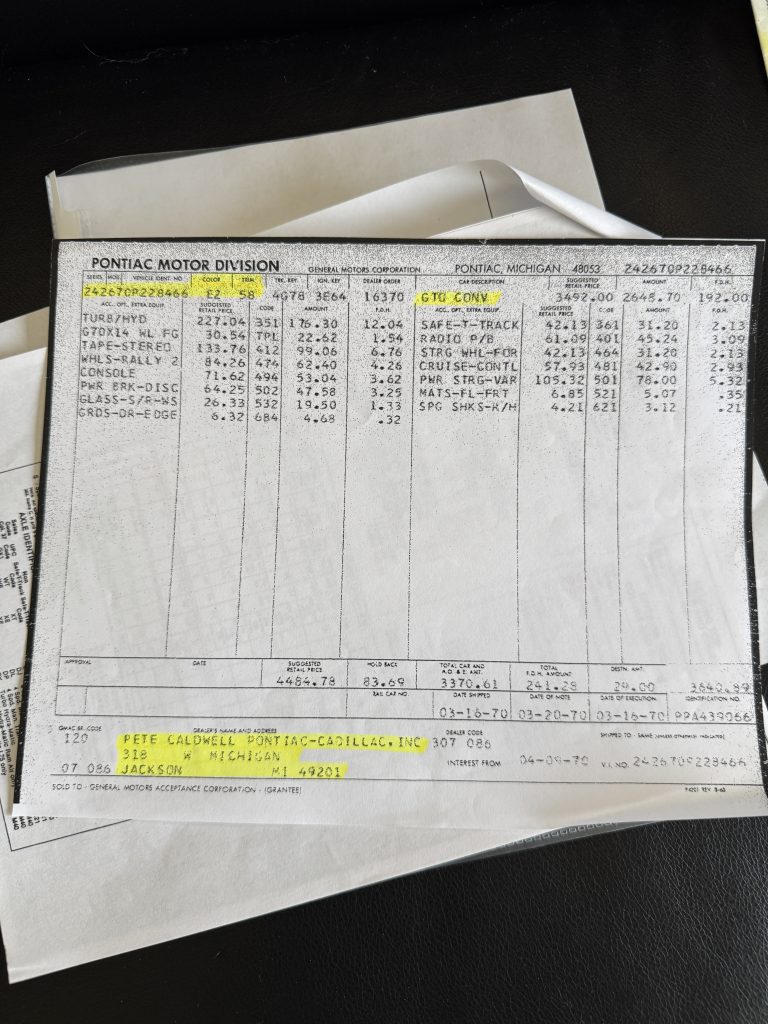 PONTIAC MOTOR DIVISION GENERAL MOTORS CORPORATION PONTIAC, MICHIGAN 48053 242670P228466
SERIES MOD. VEHICLE IDENT. NO. COLOR TRIM TRK. KEY IGN. KEY DEALER ORDER CAR DESCRIPTION SUGGESTED RETAIL PRICE AMOUNT F.D.H.
242670P228466 58 4G78 3E64 16370 GTO CONV 3492.00 192.00
ACC., OPT., EXTRA EQUIP. SUGGESTED RETAIL PRICE CODE AMOUNT F.D.H. ACC., OPT., EXTRA EQUIP. SUGGESTED RETAIL PRICE CODE AMOUNT F.D.H.
TURB/HYD 227.04 351 176.30 12.04 SAFE-T-TRACK 42.13 361 31.20 2.13
G70X14 WL FG 30.54 TPL 22.62 1.54 RADIO P/B 61.09 401 45.24 3.09
TAPE-STEREO 133.76 412 99.06 6.76 STRG WHL-FOR 42.13 464 31.20 2.13
WHLS-RALLY 2 84.26 474 62.40 4.26 CRUISE-CONTL 57.93 481 42.90 2.93
CONSOLE 71.62 494 53.04 3.62 PWR STRG-VAR 105.32 501 78.00 5.32
PWR BRK-DISC 64.25 502 47.58 3.25 MATS-FL-FRT 6.85 521 5.07 .35
GLASS-S/R-WS 26.33 532 19.50 1.33 SPG SHKS-R/H 4.21 621 3.12 .21
GRDS-DR-EDGE 6.32 684 4.68 .32
APPROVAL DATE SUGGESTED RETAIL PRICE HOLD BACK TOTAL CAR AND A.O. & E. AMT. TOTAL F.D.H. AMOUNT DESTN. AMT.
4484.78 83.69 3370.61 241.28 29.00 3640.89
RAIL CAR NO. DATE SHIPPED DATE OF NOTE DATE OF EXECUTION IDENTIFICATION NO.
03-16-70 03-20-70 03-16-70 PPA439066
GMAC BR. CODE DEALER'S NAME AND ADDRESS DEALER CODE SHIPPED TO - SAME (UNLESS OTHERWISE INDICATED)
120 PETE CALDWELL PONTIAC-CADILLAC,INC 307 086
318 W MICHIGAN INTEREST FROM 04-09-70 V.I. NO. 242670P228466
07 086 JACKSON MI 49201
SOLD TO - GENERAL MOTORS ACCEPTANCE CORPORATION - (GRANTEE)
AXLE IDENTIF